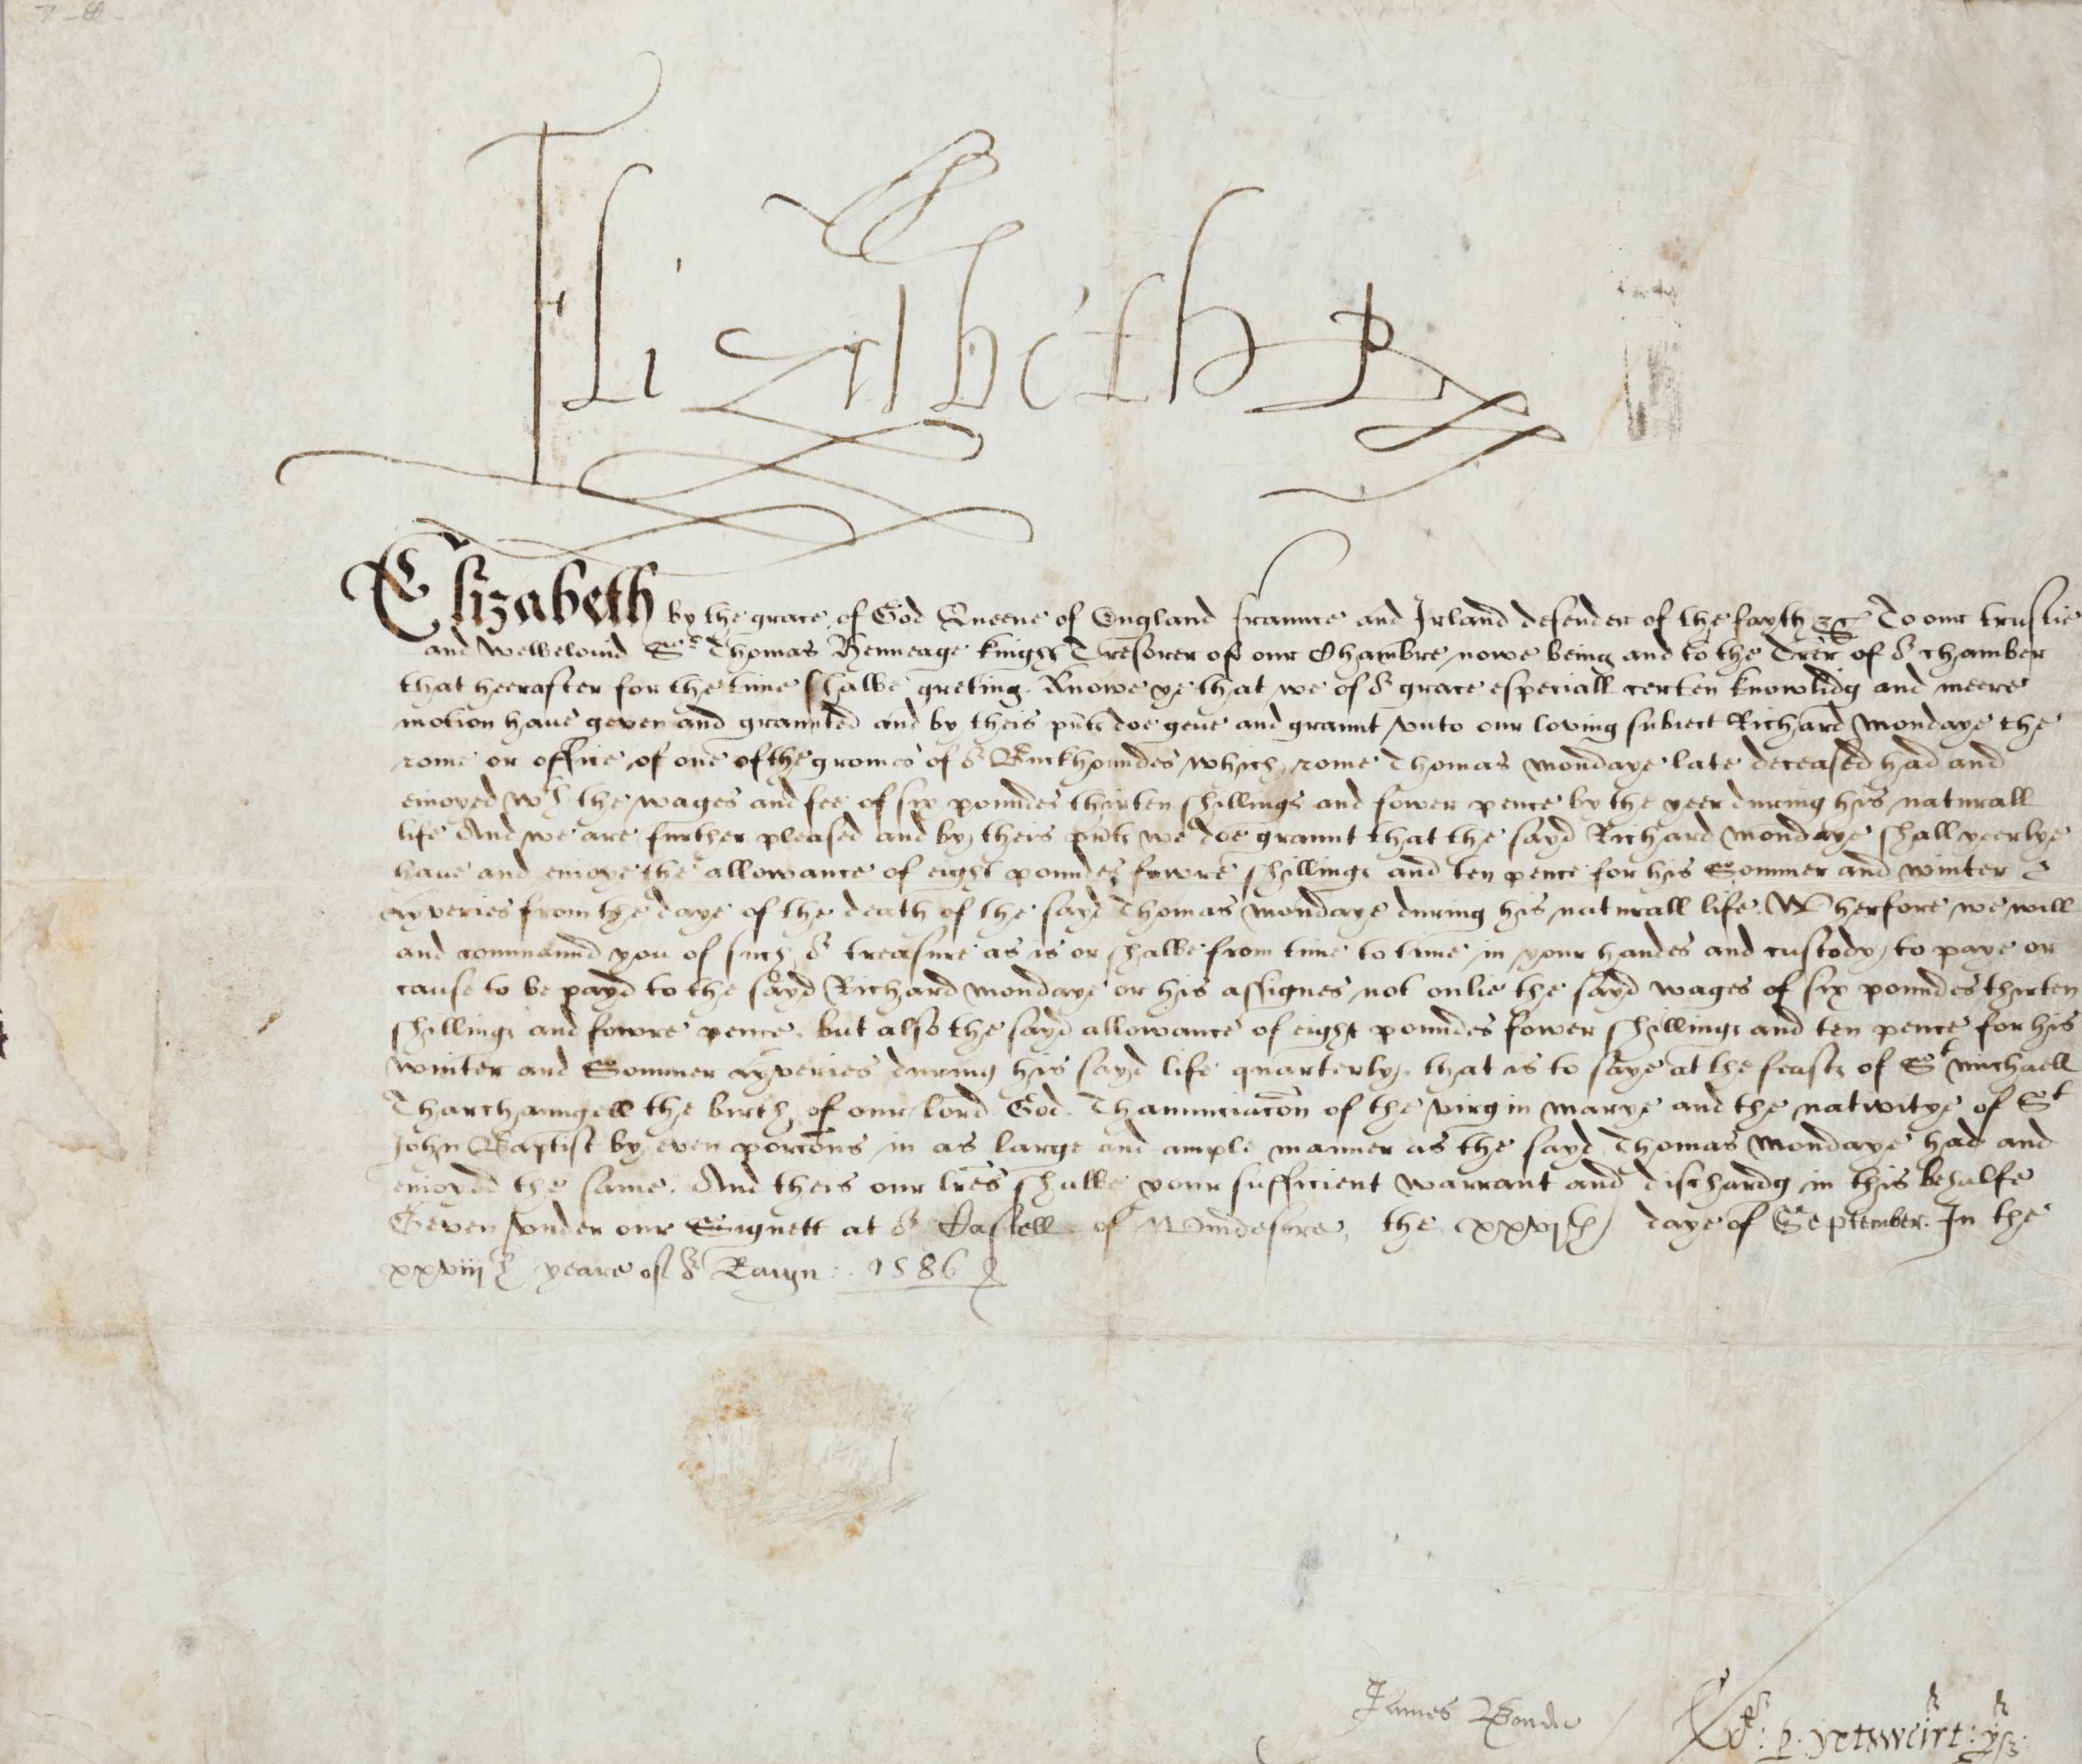 Elizabeth R
Elizabeth by the grace of God Queene of England fraunce and Irland defender of the fayth &c To our trustie
and welbelouid Sr Thomas Henneage knight Tresorer of our Chambre nowe being and to the Trer of or chamber
that heerafter for the time shalbe greting. Knowe ye that we of or grace especiall certen knowlidg and meere
motion haue geven and graunted and by theis pnts doe geue and graunt vnto our loving subiect Richard Mondaye the
rome or office of one of the gromes of or Buckhoundes which rome Thomas Mondaye late deceased had and
enioyed wth the wages and fee of six poundes thirten shillings and fower pence by the yeer during his naturall
life And we are further pleased and by theis pnts we doe graunt that the sayd Richard Mondaye shall yeerlye
haue and enioye the allowance of eight poundes fowre shillings and ten pence for his Sommer and winter
lyveries from the daye of the death of the sayd Thomas Mondaye during his naturall life. Wherfore we will
and commaund you of such or treasure as is or shalbe from time to time in your handes and custody, to paye or
cause to be payd to the sayd Richard Mondaye or his assignes not onlie the sayd wages of six poundes thirten
shillings and fowre pence. but also the sayd allowance of eight poundes fower shillings and ten pence for his
winter and Sommer lyveries during his sayd life quarterly, that is to saye at the feasts of St Michaell
Tharchaungell the birth of our lord God. Thanunciacon of the virgin Marye and the nativitye of St
John Baptist by even porcons in as large and ample manner as the sayd Thomas Mondaye had and
enioyed the same. And theis our lres shalbe your sufficient warrant and dischardg in this behalfe
Geven vnder our Signett at or Castell of Windesore, the xxvjth daye of September. In the
xxviijth yeare of or Raign: 1586
James Bonde
p. yetsweirt: